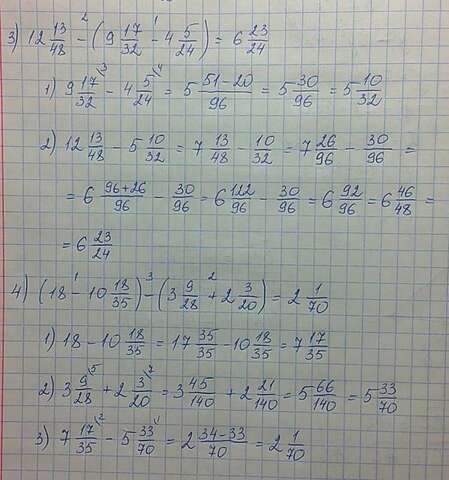 3) 12 13/48 - (9 17/32 - 4 5/24) = 6 23/24
1) 9 17/32 - 4 5/24 = 5 51-20/96 = 5 30/96 = 5 10/32
2) 12 13/48 - 5 10/32 = 7 13/48 - 10/32 = 7 26/96 - 30/96 =
= 6 96+26/96 - 30/96 = 6 122/96 - 30/96 = 6 92/96 = 6 46/48 =
= 6 23/24
4) (18 - 10 18/35) - (3 9/28 + 2 3/20) = 2 1/70
1) 18 - 10 18/35 = 17 35/35 - 10 18/35 = 7 17/35
2) 3 9/28 + 2 3/20 = 3 45/140 + 2 21/140 = 5 66/140 = 5 33/70
3) 7 17/35 - 5 33/70 = 2 34-33/70 = 2 1/70